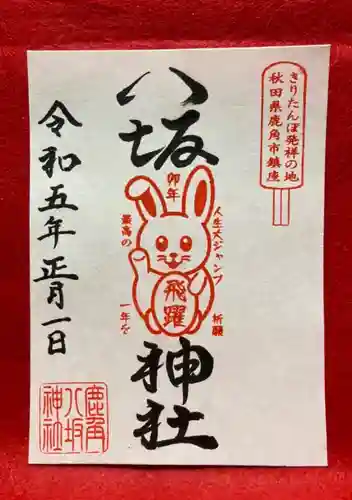 きりたんぽ発祥の地
秋田県鹿角市鎮座
八坂
卯年
人生大ジャンプ
祈願
最高の
一年を
飛躍
神社
令和五年正月一日
鹿角
八坂
神社